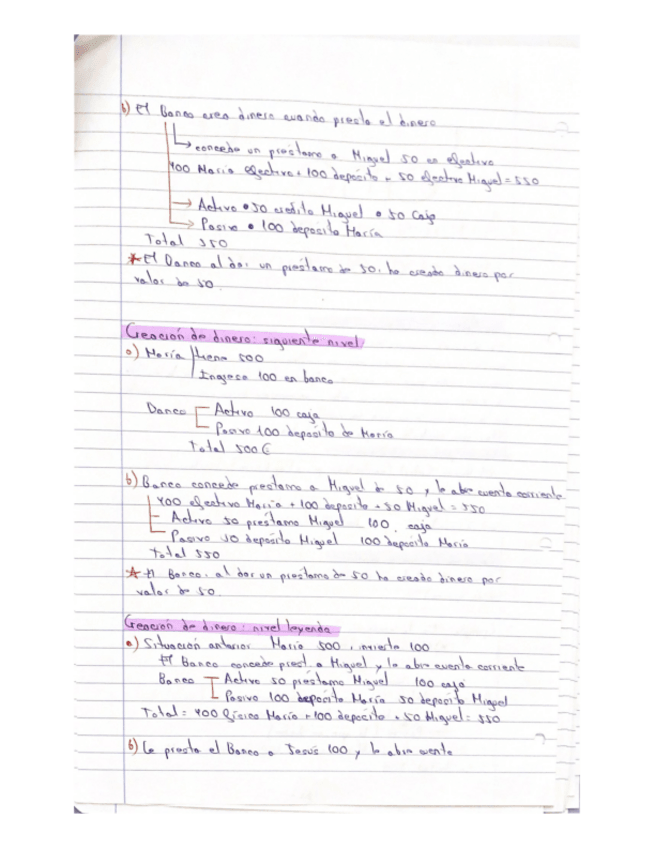 b) El Banco crea dinero cuando presta el dinero
→ concede un préstamo a Miguel 50 en efectivo
400 María efectivo + 100 depósito + 50 efectivo Miguel = 550
→ Activo • 50 crédito Miguel • 50 Caja
→ Pasivo • 100 deposito María
Total 550
* El Banco al dar un préstamo de 50, ha creado dinero por
valor de 50.
Creación de dinero: siguiente nivel
a) María tiene 500
Ingresa 100 en banco
Banco Activo 100 caja
Pasivo 100 deposito de María
Total 500€
b) Banco concede prestamo a Miguel de 50 y le abre cuenta corriente
400 efectivo María + 100 deposito + 50 Miguel = 550
Activo 50 préstamo Miguel 100 caja
Pasivo 50 depósito Miguel 100 deposito María
Total 550
* El Banco, al dar un prestamo de 50 ha creado dinero por
valor de 50.
Creación de dinero: nivel leyenda
a) Situación anterior María 500, invierte 100
El Banco concede prest. a Miguel y le abre cuenta corriente
Banco Activo 50 préstamo Miguel 100 caja
Pasivo 100 depósito María 50 deposito Miguel
Total = 400 físico María + 100 deposito + 50 Miguel = 550
b) Le presta el Banco a Jesús 100 y le abre cuenta